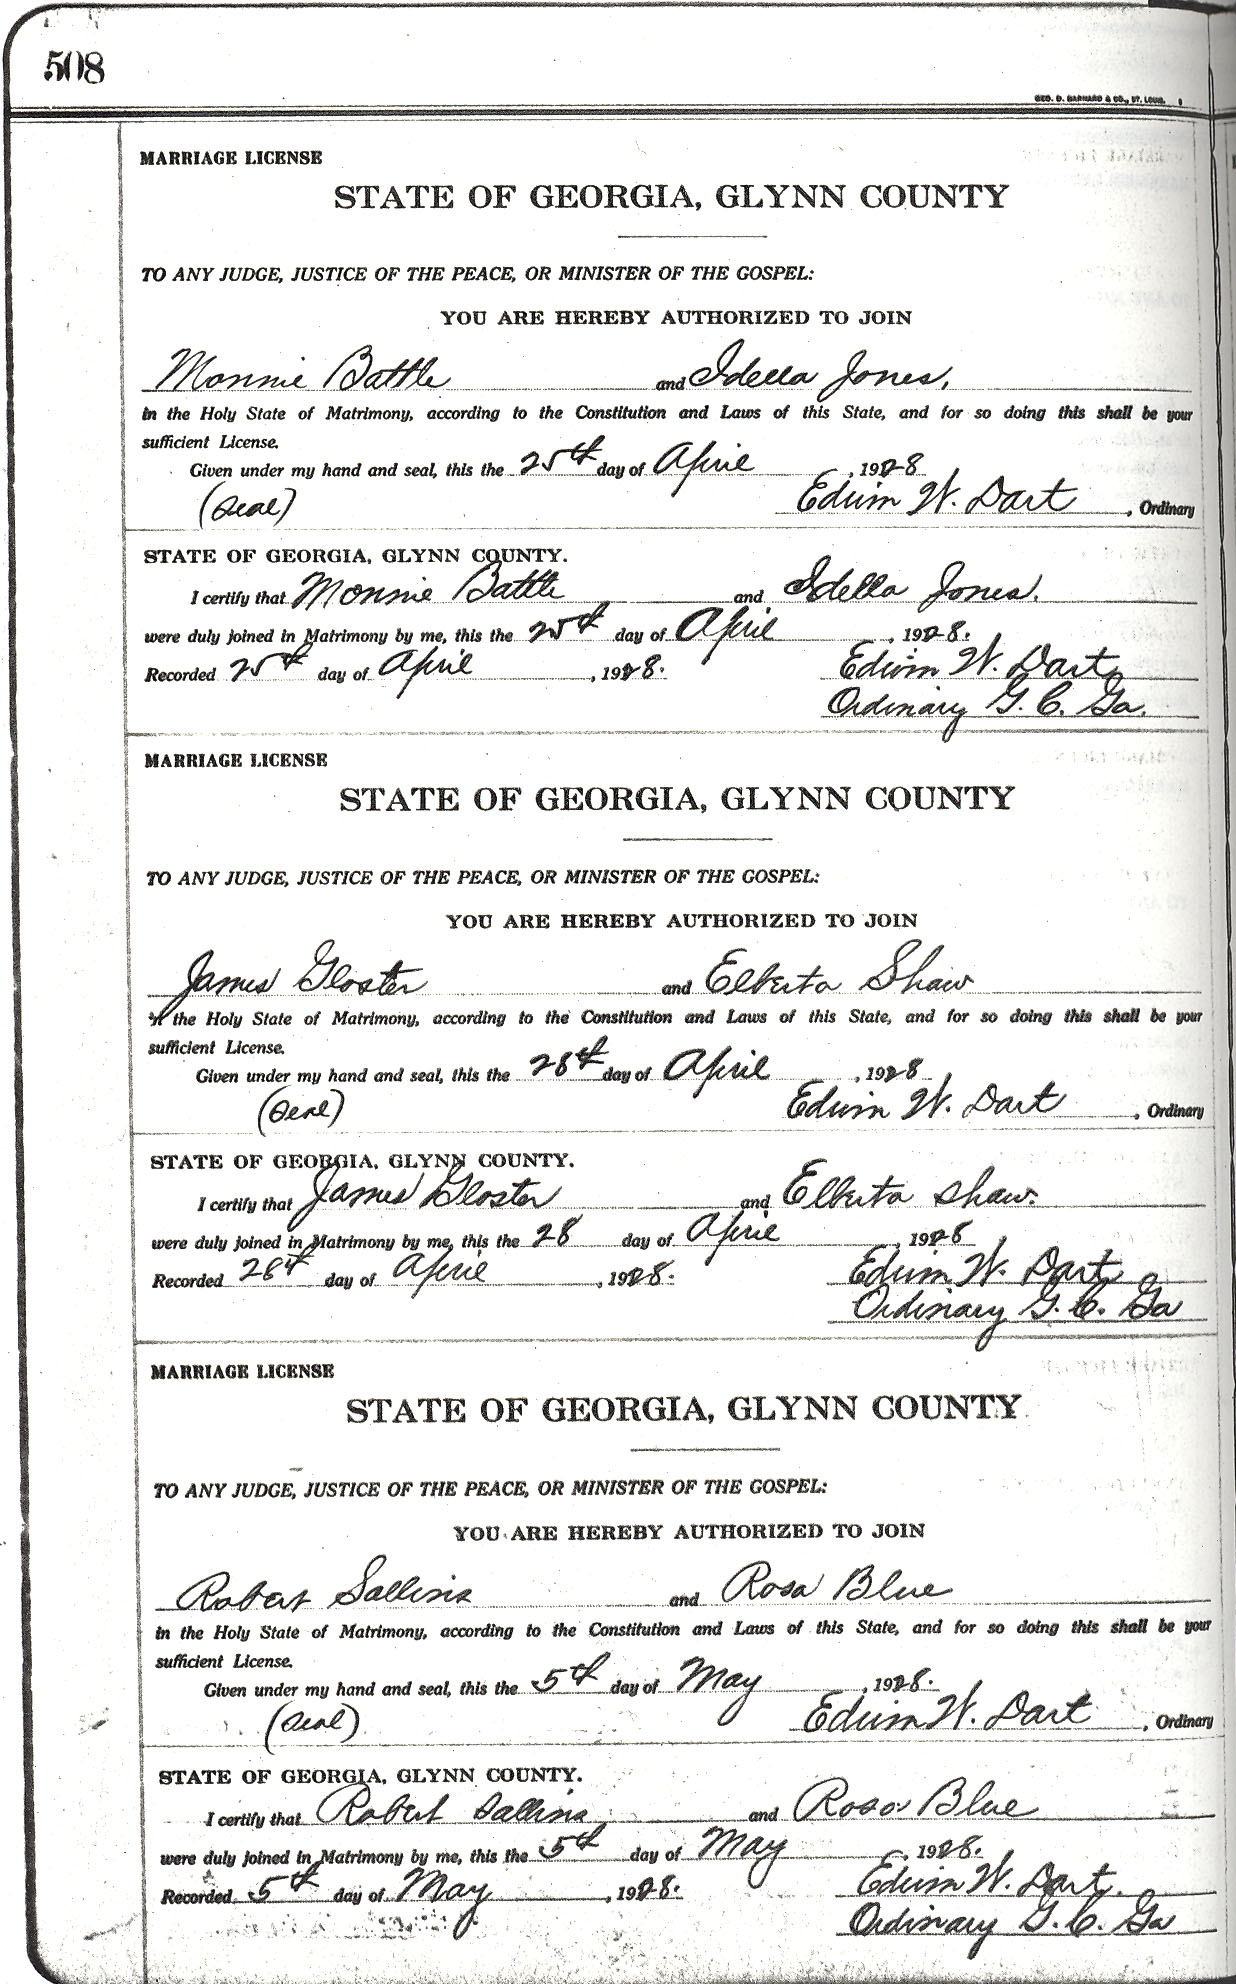 508
GEO. D. BARNARD & CO., ST. LOUIS.
MARRIAGE LICENSE
STATE OF GEORGIA, GLYNN COUNTY
TO ANY JUDGE, JUSTICE OF THE PEACE, OR MINISTER OF THE GOSPEL:
YOU ARE HEREBY AUTHORIZED TO JOIN
Monnie Battle and Idella Jones,
in the Holy State of Matrimony, according to the Constitution and Laws of this State, and for so doing this shall be your
sufficient License.
Given under my hand and seal, this the 25th day of April, 1928
(Seal) Edwin W. Dart, Ordinary
STATE OF GEORGIA, GLYNN COUNTY.
I certify that Monnie Battle and Idella Jones.
were duly joined in Matrimony by me, this the 25th day of April, 1928.
Recorded 25th day of April, 1928. Edwin W. Dart
Ordinary G. C. Ga.
MARRIAGE LICENSE
STATE OF GEORGIA, GLYNN COUNTY
TO ANY JUDGE, JUSTICE OF THE PEACE, OR MINISTER OF THE GOSPEL:
YOU ARE HEREBY AUTHORIZED TO JOIN
James Gloster and Elberta Shaw
in the Holy State of Matrimony, according to the Constitution and Laws of this State, and for so doing this shall be your
sufficient License.
Given under my hand and seal, this the 28th day of April, 1928
(Seal) Edwin W. Dart, Ordinary
STATE OF GEORGIA, GLYNN COUNTY.
I certify that James Gloster and Elberta Shaw.
were duly joined in Matrimony by me, this the 28 day of April, 1928
Recorded 28th day of April, 1928. Edwin W. Dart
Ordinary G. C. Ga
MARRIAGE LICENSE
STATE OF GEORGIA, GLYNN COUNTY
TO ANY JUDGE, JUSTICE OF THE PEACE, OR MINISTER OF THE GOSPEL:
YOU ARE HEREBY AUTHORIZED TO JOIN
Robert Sallins and Rosa Blue
in the Holy State of Matrimony, according to the Constitution and Laws of this State, and for so doing this shall be your
sufficient License.
Given under my hand and seal, this the 5th day of May, 1928.
(Seal) Edwin W. Dart, Ordinary
STATE OF GEORGIA, GLYNN COUNTY.
I certify that Robert Sallins and Rosa Blue
were duly joined in Matrimony by me, this the 5th day of May, 1928.
Recorded 5th day of May, 1928. Edwin W. Dart.
Ordinary G. C. Ga